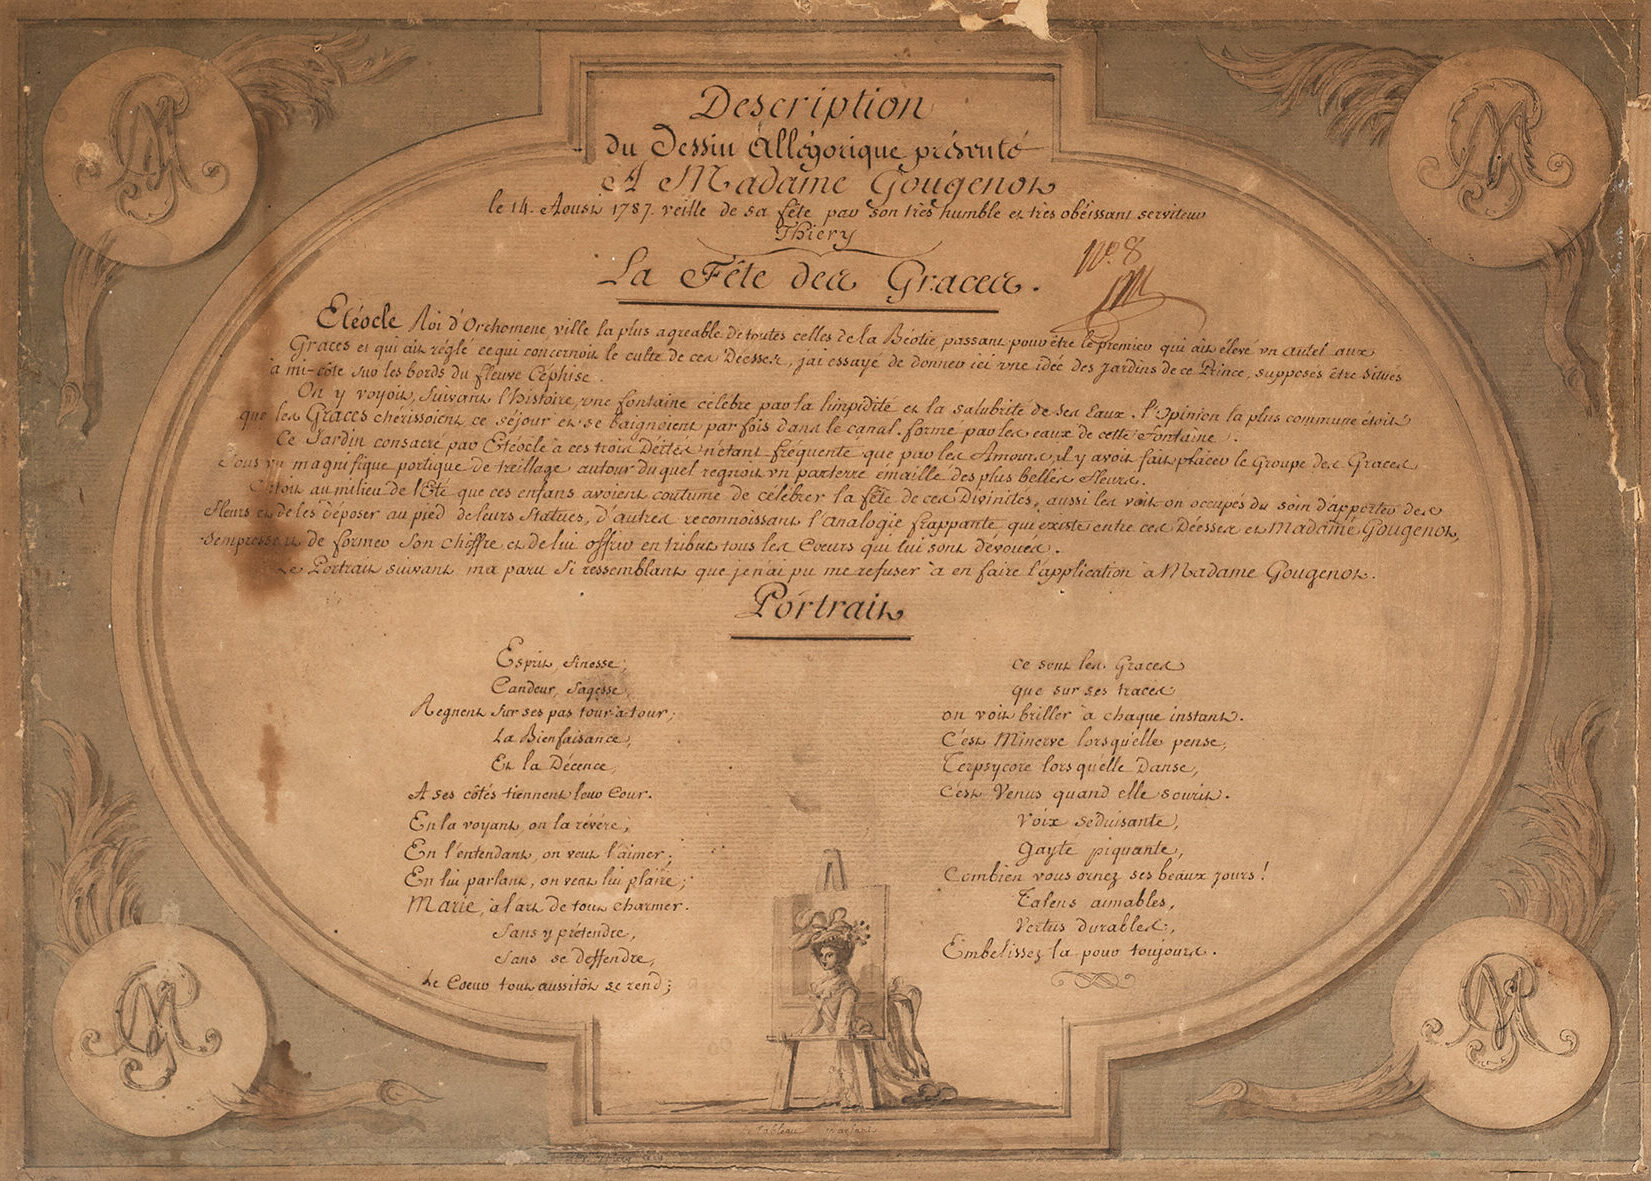 Description
du Dessin Allégorique présenté
A Madame Gougenot
le 14. Aoust 1787. veille de sa fête par son très humble et très obéissant serviteur
Thiéry
La Fête des Graces.
N.º 8
Etéocle Roi d'Orchomene ville la plus agreable de toutes celles de la Béotie passant pour être le premier qui ait élevé un autel aux
Graces et qui ait réglé ce qui concernoit le culte de ces Déesses, j'ai essayé de donner ici une idée des Jardins de ce Prince, supposés être situés
à mi-côte sur les bords du fleuve Céphise.
On y voyoit, suivant l'histoire, une fontaine célébre par la limpidité et la salubrité de ses Eaux. l'Opinion la plus commune étoit
que les Graces chérissoient ce séjour et se baignoient par fois dans le canal formé par les eaux de cette Fontaine.
Ce Jardin consacré par Etéocle à ces trois Déités n'étant fréquenté que par les Amours, il y avoit fait placer le Groupe des Graces
sous un magnifique portique de treillage autour du quel regnoit un parterre émaillé des plus belles fleurs.
C'étoit au milieu de l'Eté que ces enfans avoient coutume de célébrer la fête de ces Divinités, aussi les voit-on occupés du soin d'apporter des
fleurs et de les déposer au pied de leurs Statues, d'autres reconnoissant l'analogie frappante qui existe entre ces Déesses et Madame Gougenot,
s'empressent de former son chiffre et de lui offrir en tribut tous les Coeurs qui lui sont dévoués.
Le Portrait suivant m'a paru si ressemblant que je n'ai pu me refuser à en faire l'application à Madame Gougenot.
Portrait
Esprit, finesse,
Candeur, sagesse,
Regnent sur ses pas tour à tour;
La Bienfaisance,
Et la Décence,
A ses côtés tiennent leur Cour.
En la voyant, on la révère;
En l'entendant, on veut l'aimer;
En lui parlant, on veut lui plaire;
Marie, à l'art de tout charmer.
Sans y prétendre,
Sans se deffendre,
Le Coeur tout aussitôt se rend;
Ce sont les Graces
que sur ses traces
on voit briller à chaque instant.
C'est Minerve lorsqu'elle pense,
Terpsycore lors qu'elle Danse,
C'est Venus quand elle sourit.
Voix séduisante,
Gayté piquante,
Combien vous ornez ses beaux jours!
Talens aimables,
Vertus durables,
Embelissez la pour toujours.
Tableau parlant